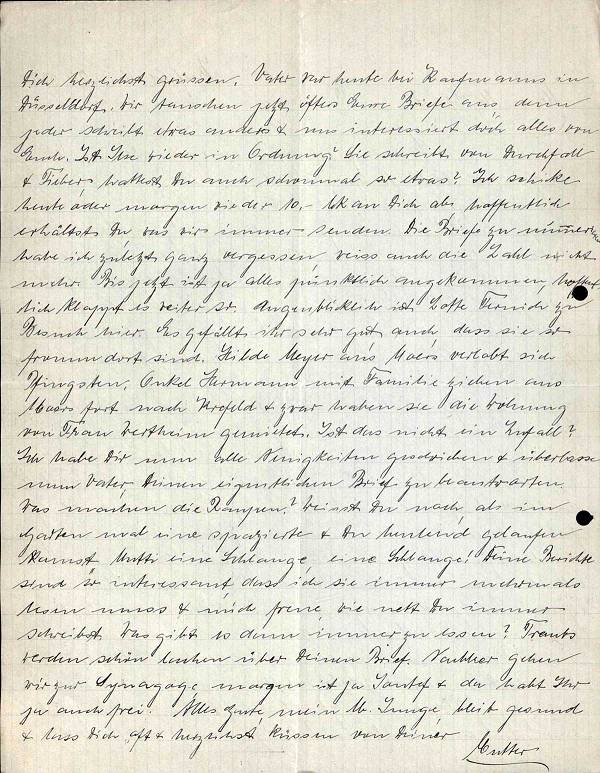 Dich herzlichst grüssen. Vater war heute bei Kaufmanns in
Düsseldorf. Wir tauschen jetzt öfters Eure Briefe aus denn
jeder schreibt etwas anders & uns interessiert doch alles von
Euch. Ist Ilse wieder in Ordnung? Sie schreibt von Durchfall
& Fieber, hattest Du auch schonmal so etwas? Ich schicke
heute oder morgen wieder 10,- Mk an Dich ab, hoffentlich
erhältst Du was wir immer senden. Die Briefe zu nummerieren
habe ich zuletzt ganz vergessen weiss auch die Zahl nicht
mehr. Bis jetzt ist ja alles pünktlich angekommen, hoffent
lich klappt es weiter so. Augenblicklich ist Lotte zu
Besuch hier. Es gefällt ihr sehr gut auch, dass sie so
fromm dort sind. Hilde Meyer aus Moers verlobt sich
Pfingsten. Onkel Hermann mit Familie ziehen aus
Moers fort nach Krefeld & zwar haben sie die Wohnung
von Frau Wertheim gemietet. Ist das nicht ein Zufall?
Ich habe Dir nun alle Neuigkeiten geschrieben & überlasse
nun Vater, Deinen eigentlichen Brief zu beantworten.
Was machen die Raupen? Weisst Du noch als im
Garten mal eine spazierte & Du heulend gelaufen
kamst Mutti eine Schlange, eine Schlange! Deine Berichte
sind so interessant, dass ich sie immer mehrmals
lesen muss & mich freue, wie nett Du immer
schreibst. Was gibt es denn immer zu essen?
werden schön lachen über Deinen Brief. Nachher gehen
wir zur Synagoge, morgen ist ja Jontef & da habt Ihr
ja auch frei. Alles Gute, mein lb. Junge, bleib gesund
& lass Dich oft & herzlichst küssen von Deiner
Mutter